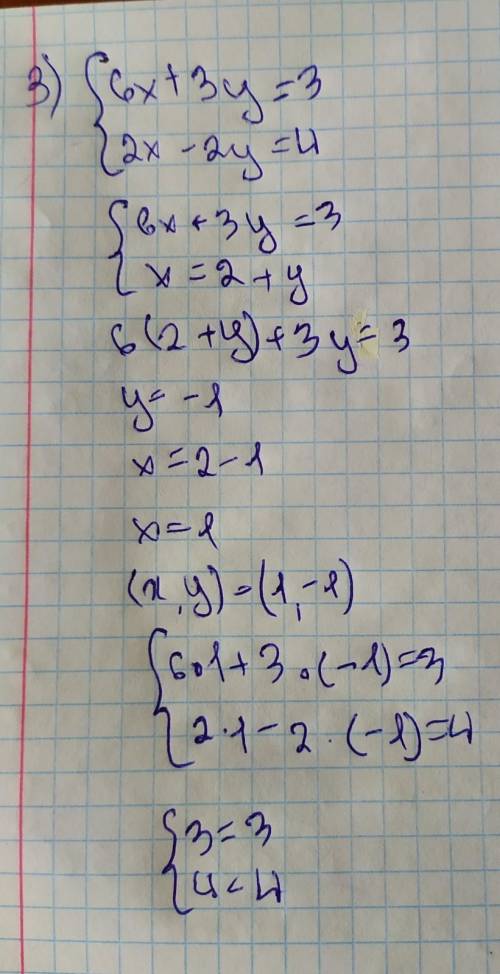 3) { 6x + 3y = 3
2x - 2y = 4
{ 6x + 3y = 3
x = 2 + y
6(2 + y) + 3y = 3
y = -1
x = 2 - 1
x = 1
(x, y) = (1, -1)
{ 6·1 + 3·(-1) = 3
2·1 - 2·(-1) = 4
{ 3 = 3
4 = 4